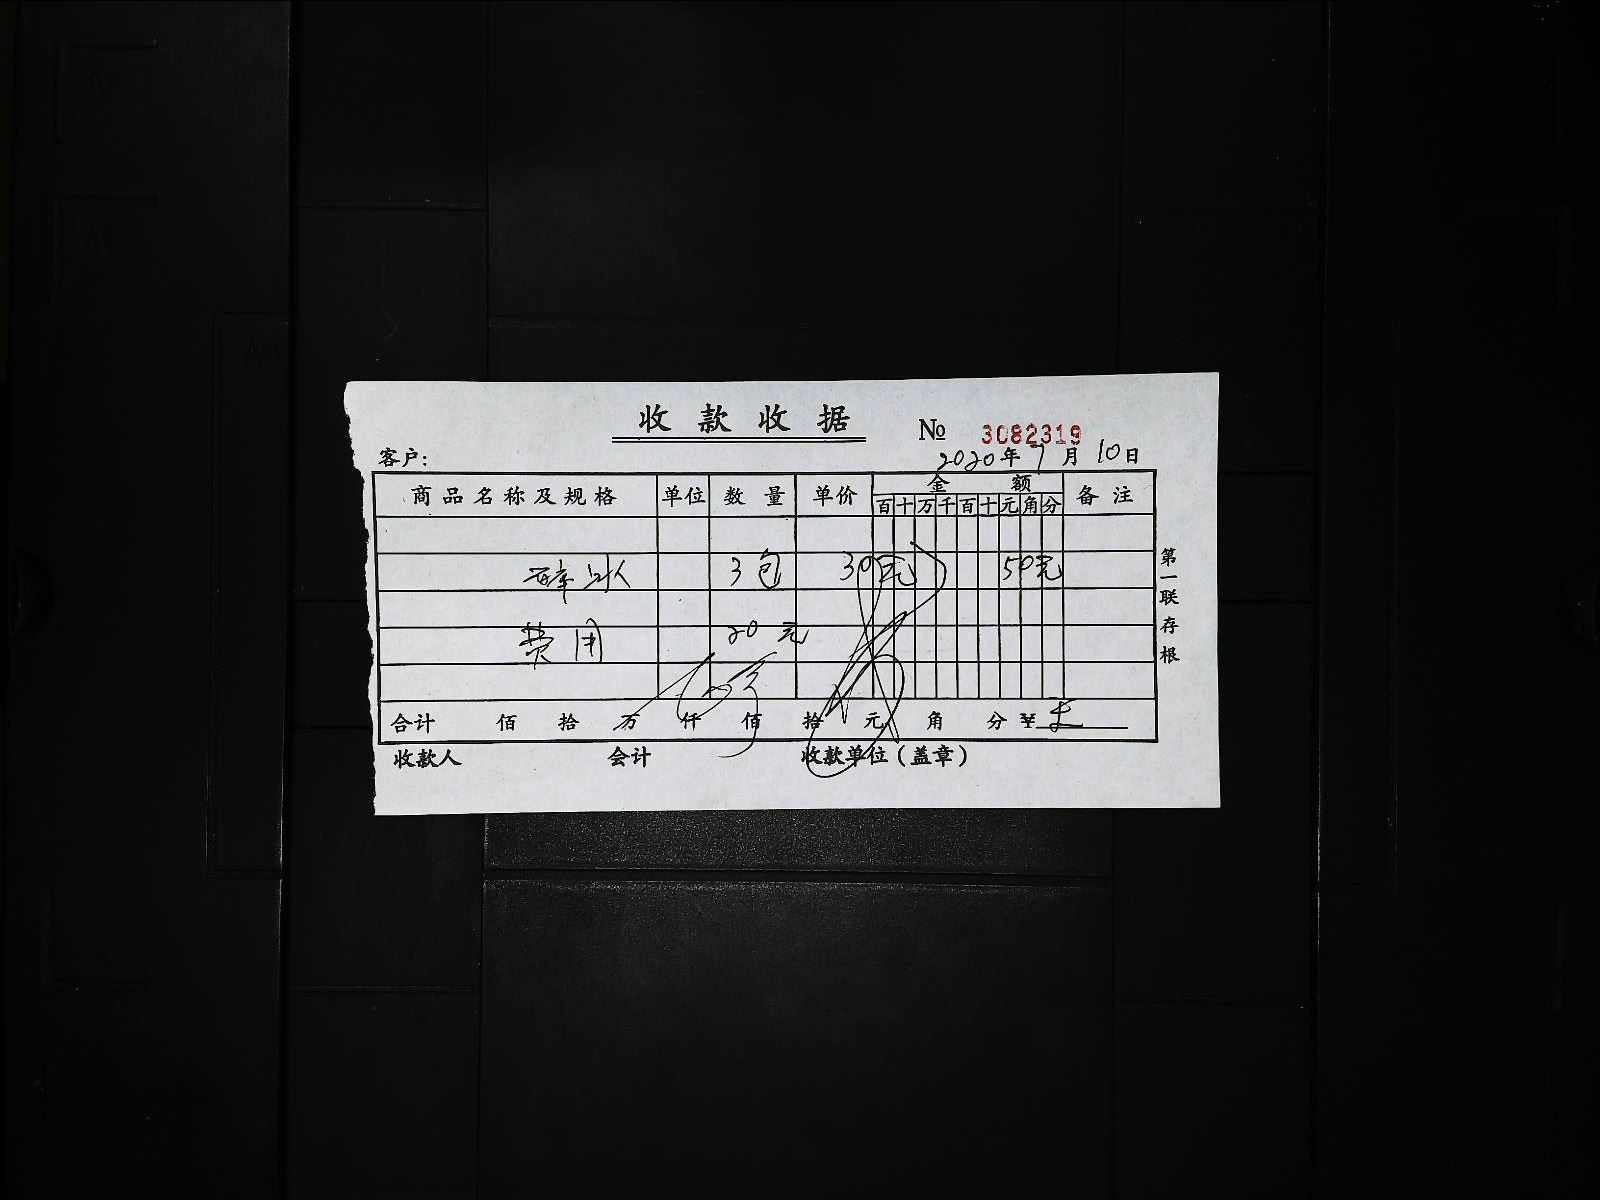 收款收据
№ 3082319
客户: 2020年7月10日
商品名称及规格 单位 数量 单价 金额 备注
百十万千百十元角分
3包 30元 50元
费用 20元
合计 佰 拾 万 仟 佰 拾 元 角 分 ¥
收款人 会计 收款单位(盖章)
第一联存根
A6